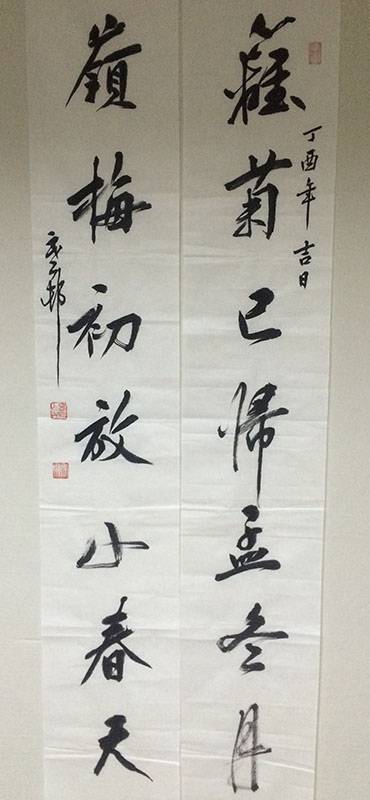 籬菊已歸孟冬月
丁酉年 吉日
嶺梅初放小春天